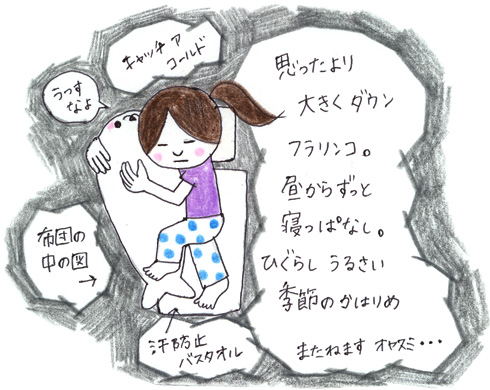 キャッチ ア
コールド
うつす
なよ
思ったより
大きく ダウン
フラリンコ。
昼からずっと
寝っぱなし。
ひぐらし うるさい
季節のかはりめ
またねます オヤスミ・・・
布団の
中の図
→
汗防止
バスタオル